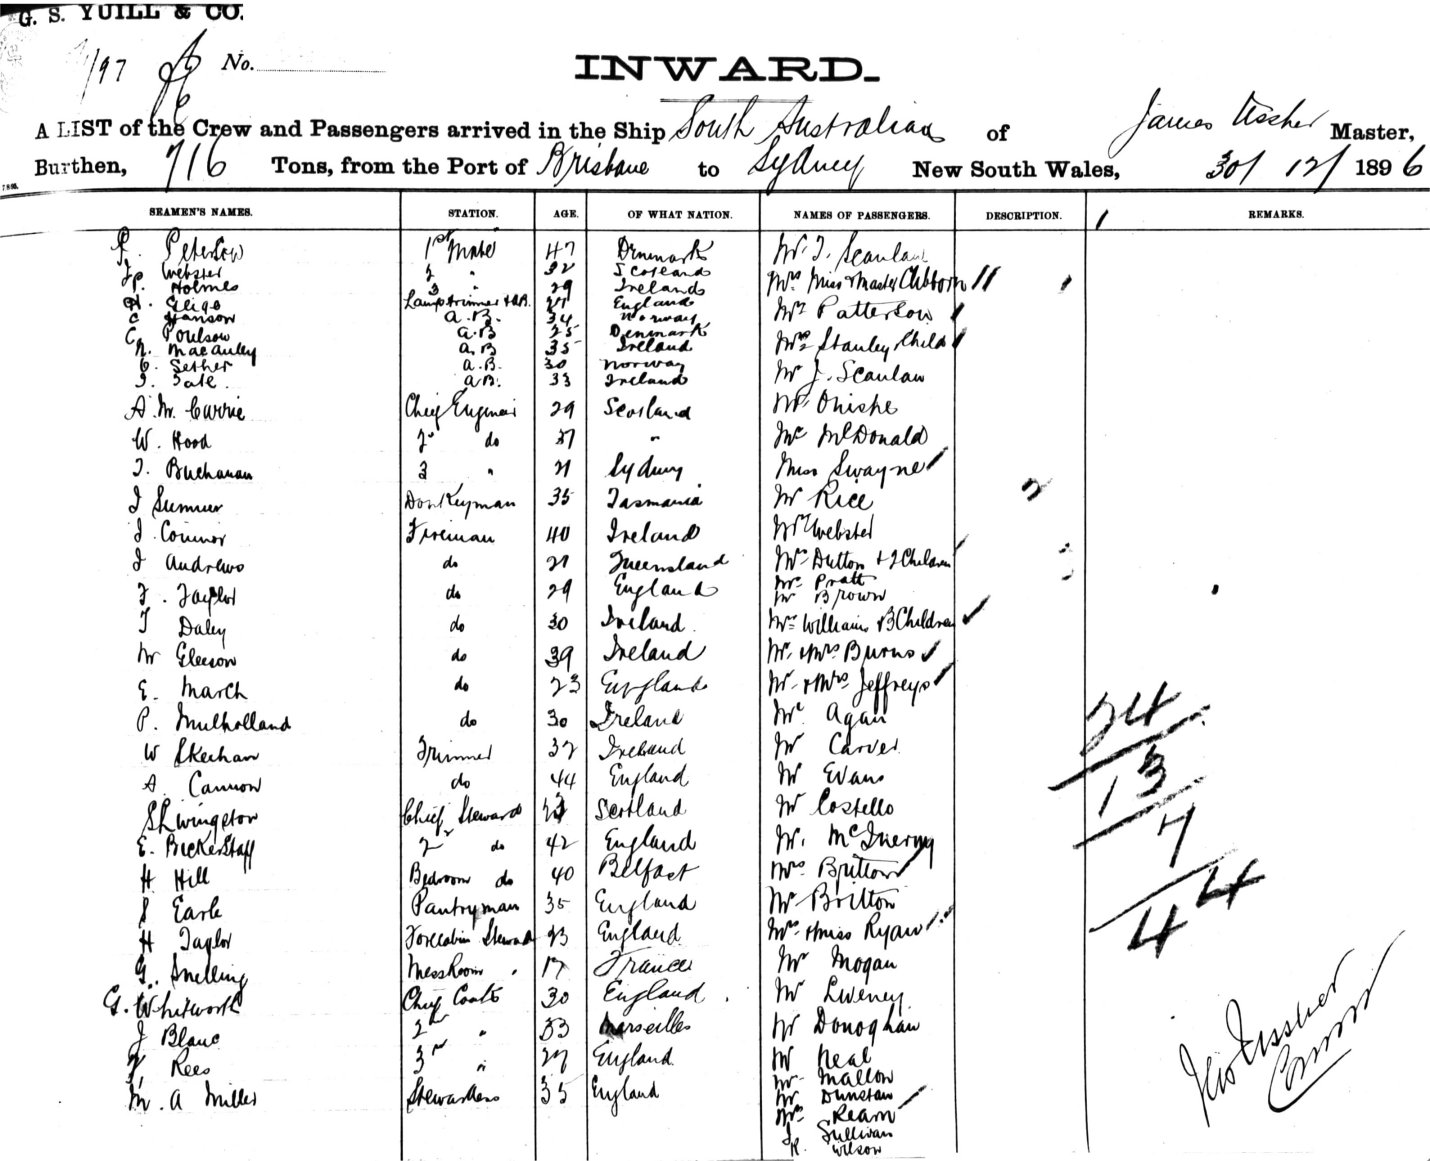 G. S. YUILL & CO.
/97 No.
INWARD.
A LIST of the Crew and Passengers arrived in the Ship South Australian of James Ussher Master,
Burthen, 716 Tons, from the Port of Brisbane to Sydney New South Wales, 30/ 12/ 1896
SEAMEN'S NAMES. STATION. AGE. OF WHAT NATION. NAMES OF PASSENGERS. DESCRIPTION. REMARKS.
P. Peterson 1st Mate 47 Denmark Mr. T. Scanlan
Webster 2 " 32 Scotland Mrs Miss & Master Clibborn
Holmes 3 29 Ireland
Lamp trimmer & A.B. England Mrs Patterson
C Hanson A.B. 34 Norway
C. Poulsen A.B 25 Denmark Mrs Stanley Child
N. MacAuley A.B 35 Ireland
Sether A.B. 30 Norway Mr J. Scanlan
J. Tate. A.B. 33 Ireland
A. Mc Currie Chief Engineer 29 Scotland Mr
W. Hood 2 do 37 " Mr McDonald
J. Buchanan 3 " 21 Sydney Miss Swayne
J Sumner Donkeyman 35 Tasmania Mr Rice 2
J. Connor Fireman 40 Ireland Mr Webster
J Andrews do 21 Queensland Mrs Dutton & 2 Children
J. Taylor do 29 England Mr Pratt
Mr Brown
T Daley do 30 Ireland. Mrs Williams & 3 Children
M Gleeson do 39 Ireland Mr. & Mrs Burns
E. March do 23 England Mr. & Mrs Jeffreys
P. Mulholland do 30 Ireland Mr Agan 24
W Skeehan Trimmer 32 Ireland Mr Carver
A. Cannon do 44 England Mr Evans 13
S Livingston Chief Steward Scotland Mr Costello 7
E. Bickerstaff 2 do 42 England Mr. McInerny
H. Hill Bedroom do 40 Belfast Mrs Britton 44
S Earle Pantryman 35 England Mr Britton 4
H Taylor Forecabin Steward 23 England Mrs & Miss Ryan
G. Snelling Mess Room " 17 France Mr Mogan
G. Whitworth Chief Cook 30 England. Mr Sweney
J Blanc 2nd " 33 Marseilles Mr Donoghan
Rees 3rd " 27 England. Mr Neal
M. A Miller Stewardess 35 England Mr Mallon
Mr Dunstan
Mrs Ream
J. Sullivan
K. Wilson
Ussher